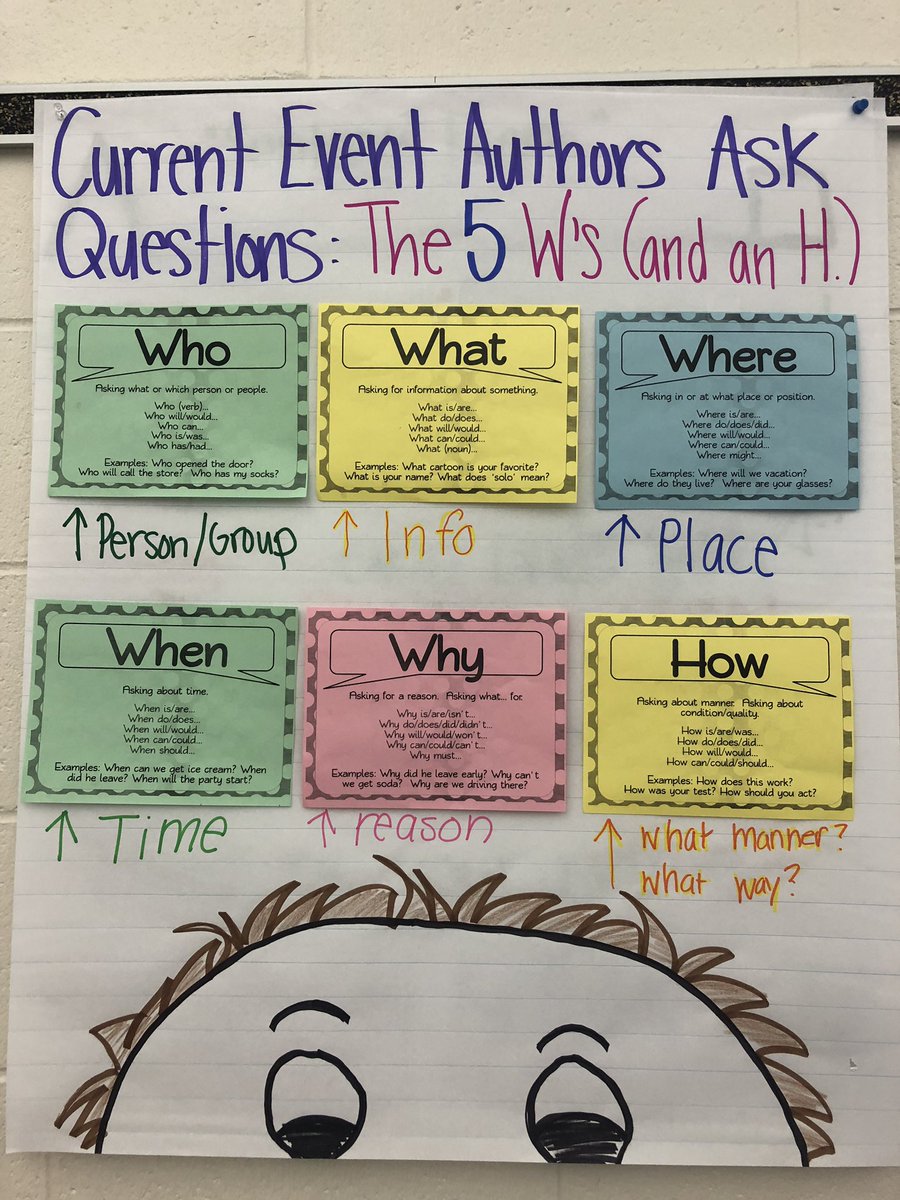 Current Event Authors Ask
Questions: The 5 W's (and an H.)
Who
Asking what or which person or people.
Who (verb)...
Who will/would...
Who can...
Who is/was...
Who has/had...
Examples: Who opened the door?
Who will call the store? Who has my socks?
↑ Person/Group
What
Asking for information about something.
What is/are...
What do/does...
What will/would...
What can/could...
What (noun)...
Examples: What cartoon is your favorite?
What is your name? What does 'solo' mean?
↑ Info
Where
Asking in or at what place or position.
Where is/are...
Where do/does/did...
Where will/would...
Where can/could...
Where might...
Examples: Where will we vacation?
Where do they live? Where are your glasses?
↑ Place
When
Asking about time.
When is/are...
When do/does...
When will/would...
When can/could...
When should...
Examples: When can we get ice cream? When
did he leave? When will the party start?
↑ Time
Why
Asking for a reason. Asking what... for.
Why is/are/isn't...
Why do/does/did/didn't...
Why will/would/won't...
Why can/could/can't...
Why must...
Examples: Why did he leave early? Why can't
we get soda? Why are we driving there?
↑ reason
How
Asking about manner. Asking about
condition/quality.
How is/are/was...
How do/does/did...
How will/would...
How can/could/should...
Examples: How does this work?
How was your test? How should you act?
↑ What manner?
What way?